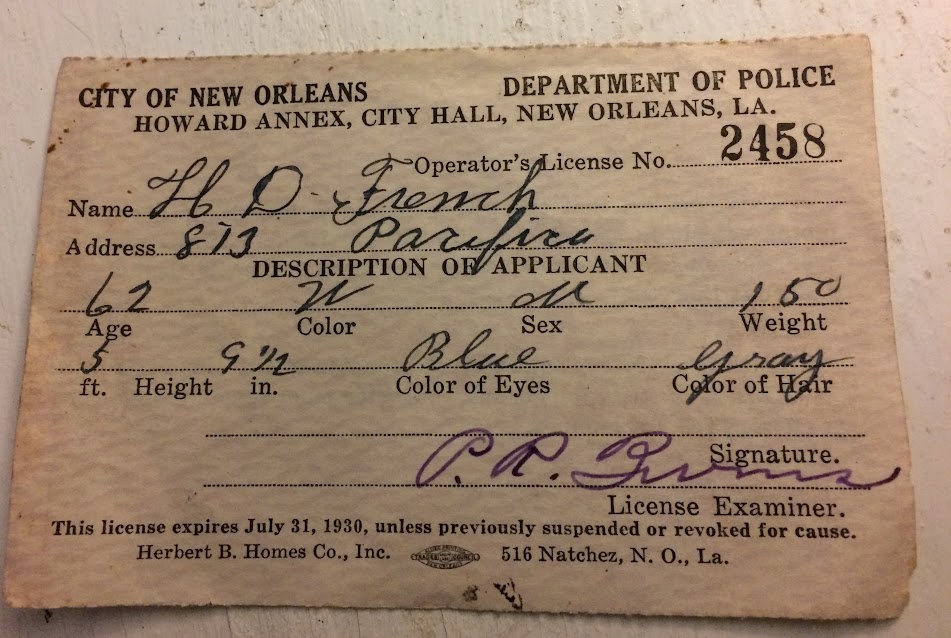 CITY OF NEW ORLEANS DEPARTMENT OF POLICE
HOWARD ANNEX, CITY HALL, NEW ORLEANS, LA.
Operator's License No. 2458
Name H D French
Address 813 Pacific
DESCRIPTION OF APPLICANT
62 W M 150
Age Color Sex Weight
5 9½ Blue Gray
ft. Height in. Color of Eyes Color of Hair
Signature.
P. R.
License Examiner.
This license expires July 31, 1930, unless previously suspended or revoked for cause.
Herbert B. Homes Co., Inc. 516 Natchez, N. O., La.